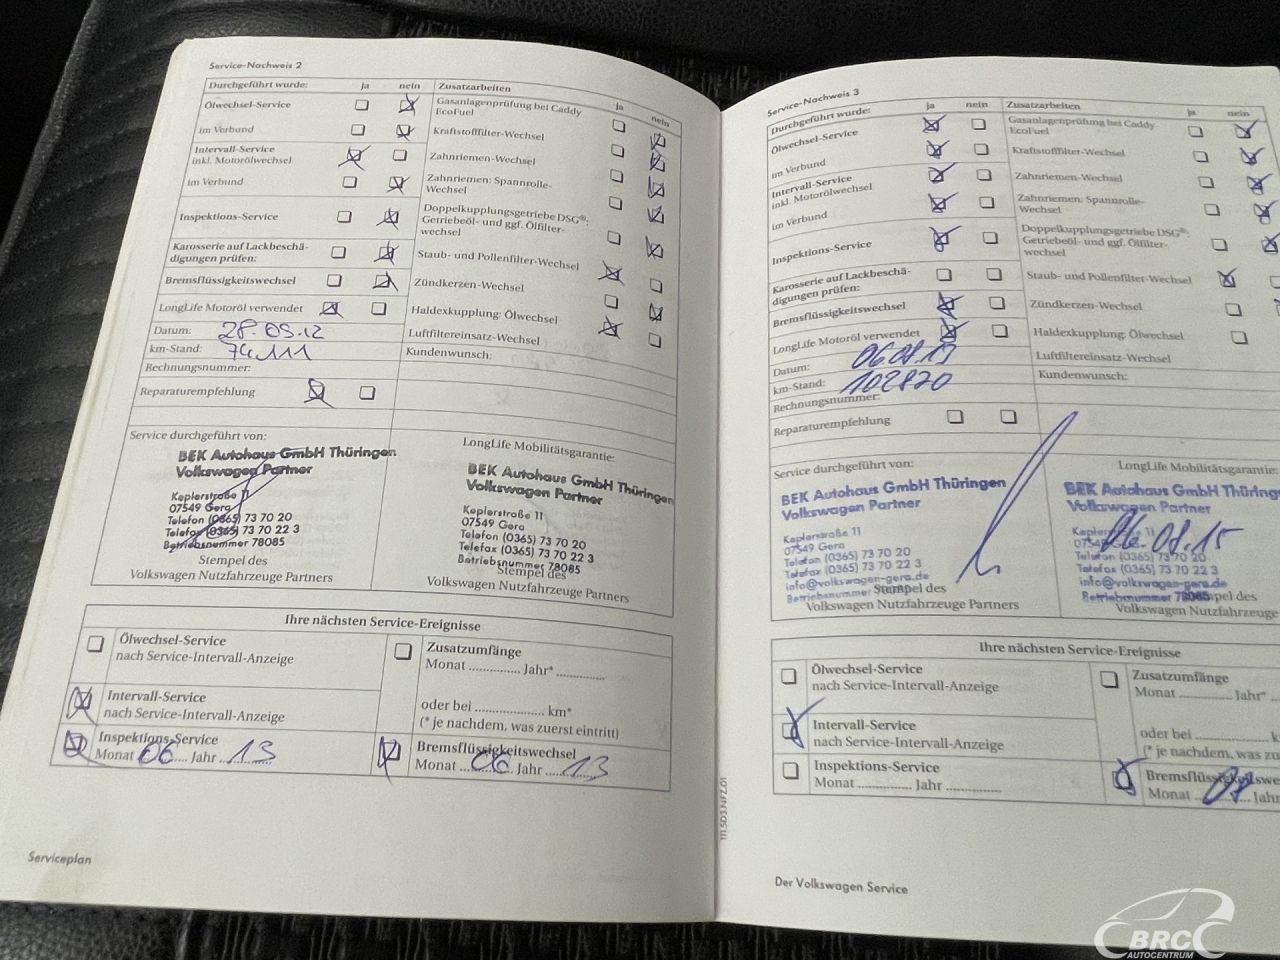 Service-Nachweis 2
Durchgeführt wurde: ja nein
Ölwechsel-Service
im Verbund
Intervall-Service
inkl. Motorölwechsel
im Verbund
Inspektions-Service
Karosserie auf Lackbeschä-
digungen prüfen:
Bremsflüssigkeitswechsel
LongLife Motoröl verwendet
Datum: 28.05.12
km-Stand: 74.111
Rechnungsnummer:
Reparaturempfehlung
Zusatzarbeiten ja nein
Gasanlagenprüfung bei Caddy
EcoFuel
Kraftstofffilter-Wechsel
Zahnriemen-Wechsel
Zahnriemen: Spannrolle-
Wechsel
Doppelkupplungsgetriebe DSG®:
Getriebeöl- und ggf. Ölfilter-
wechsel
Staub- und Pollenfilter-Wechsel
Zündkerzen-Wechsel
Haldexkupplung: Ölwechsel
Luftfiltereinsatz-Wechsel
Kundenwunsch:
Service durchgeführt von:
BEK Autohaus GmbH Thüringen
Volkswagen Partner
Keplerstraße 11
07549 Gera
Telefon (0365) 73 70 20
Telefax (0365) 73 70 22 3
Betriebsnummer 78085
Stempel des
Volkswagen Nutzfahrzeuge Partners
LongLife Mobilitätsgarantie:
BEK Autohaus GmbH Thüringen
Volkswagen Partner
Keplerstraße 11
07549 Gera
Telefon (0365) 73 70 20
Telefax (0365) 73 70 22 3
Betriebsnummer 78085
Stempel des
Volkswagen Nutzfahrzeuge Partners
Ihre nächsten Service-Ereignisse
Ölwechsel-Service
nach Service-Intervall-Anzeige
Intervall-Service
nach Service-Intervall-Anzeige
Inspektions-Service
Monat 06 Jahr 13
Zusatzumfänge
Monat Jahr*
oder bei km*
(* je nachdem, was zuerst eintritt)
Bremsflüssigkeitswechsel
Monat 06 Jahr 13
Serviceplan
Service-Nachweis 3
Durchgeführt wurde: ja nein
Ölwechsel-Service
im Verbund
Intervall-Service
inkl. Motorölwechsel
im Verbund
Inspektions-Service
Karosserie auf Lackbeschä-
digungen prüfen:
Bremsflüssigkeitswechsel
LongLife Motoröl verwendet
Datum: 06.08.13
km-Stand: 102820
Rechnungsnummer:
Reparaturempfehlung
Zusatzarbeiten ja nein
Gasanlagenprüfung bei Caddy
EcoFuel
Kraftstofffilter-Wechsel
Zahnriemen-Wechsel
Zahnriemen: Spannrolle-
Wechsel
Doppelkupplungsgetriebe DSG®:
Getriebeöl- und ggf. Ölfilter-
wechsel
Staub- und Pollenfilter-Wechsel
Zündkerzen-Wechsel
Haldexkupplung: Ölwechsel
Luftfiltereinsatz-Wechsel
Kundenwunsch:
Service durchgeführt von:
BEK Autohaus GmbH Thüringen
Volkswagen Partner
Keplerstraße 11
07549 Gera
Telefon (0365) 73 70 20
Telefax (0365) 73 70 22 3
info@volkswagen-gera.de
Betriebsnummer
Stempel des
Volkswagen Nutzfahrzeuge Partners
LongLife Mobilitätsgarantie:
BEK Autohaus GmbH Thüringen
Volkswagen Partner
06.08.15
Telefon (0365) 73 70 20
Telefax (0365) 73 70 22 3
info@volkswagen-gera.de
Betriebsnummer 78085
Stempel des
Volkswagen Nutzfahrzeuge Partners
Ihre nächsten Service-Ereignisse
Ölwechsel-Service
nach Service-Intervall-Anzeige
Intervall-Service
nach Service-Intervall-Anzeige
Inspektions-Service
Monat Jahr
Zusatzumfänge
Monat Jahr*
oder bei
(* je nachdem, was
Bremsflüssigkeitswe
Monat 08 Jahr
111.5D3.NFZ.01
Der Volkswagen Service
BRC
AUTOCENTRUM